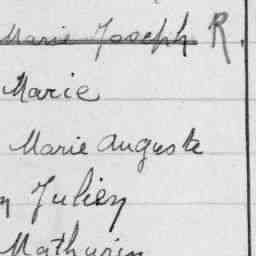 Marie Joseph R.
Marie
Marie Auguste
Julien
Mathurin